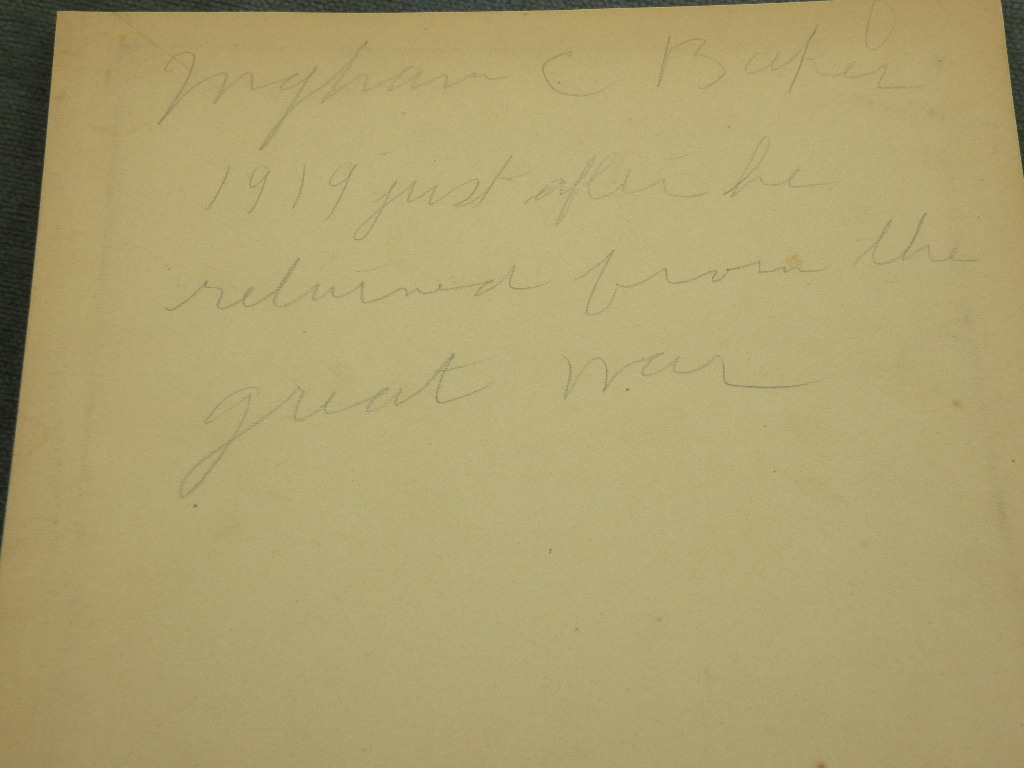 Ingham C Baker
1919 just after he
returned from the
great war